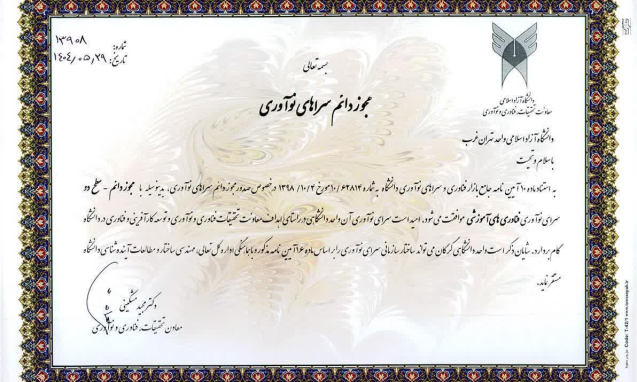 شماره: ۱۳۹۰۸
تاریخ: ۱۴۰۴/۰۵/۲۹
دانشگاه آزاد اسلامی
معاونت تحقیقات، فناوری و نوآوری
بسمه تعالی
مجوز دائم سراهای نوآوری
دانشگاه آزاد اسلامی واحد تهران غرب
با سلام و تحیت
به استناد ماده ۱۰ آیین نامه جامع بازار فناوری و سراهای نوآوری دانشگاه به شماره ۱۰/۶۲۸۱۴ مورخ ۱۳۹۸/۱۰/۴ در خصوص صدور مجوز دائم سراهای نوآوری، بدینوسیله با مجوز دائم - سطح دو
سرای نوآوری فناوری های آموزشی موافقت می شود. امید است سرای نوآوری آن واحد دانشگاهی در راستای اهداف معاونت تحقیقات فناوری و نوآوری و توسعه کارآفرینی و فناوری در دانشگاه
گام بردارد. شایان ذکر است واحد دانشگاهی گرگان می تواند ساختار سازمانی سرای نوآوری را بر اساس ماده ۱۶ آیین نامه مذکور و با هماهنگی اداره کل تعالی، مهندسی ساختار و مطالعات آینده شناسی دانشگاه
مستقر نماید.
دکتر مجید مشکینی
معاون تحقیقات، فناوری و نوآوری